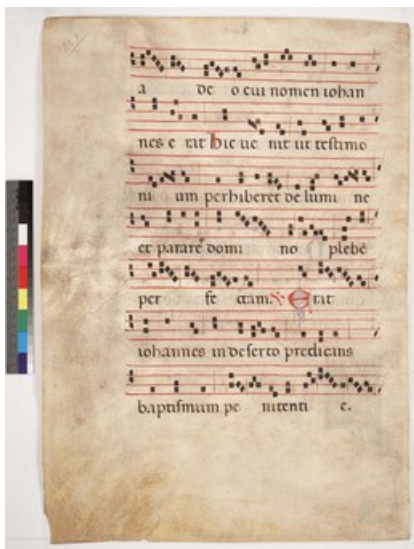 a de o cui nomen iohan
nes e rat hic ue nit ut testimo
ni um perhiberet de lumi ne
et parare domi no plebē
per fe ctam. Erat
iohannes in deserto predicans
baptismum pe nitenti e.